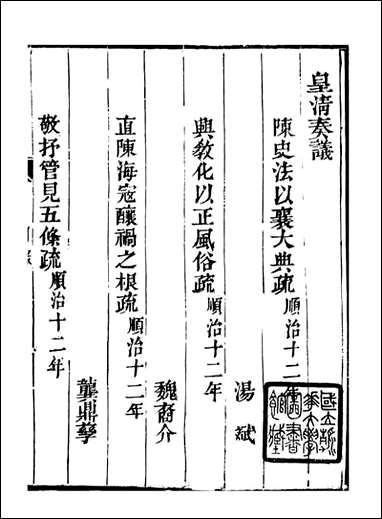 皇淸奏議
陳史法以襄大典疏順治十二年
湯斌
興敎化以正風俗疏順治十二年
魏裔介
直陳海寇釀禍之根疏順治十二年
龔鼎孳
敬抒管見五條疏順治十二年